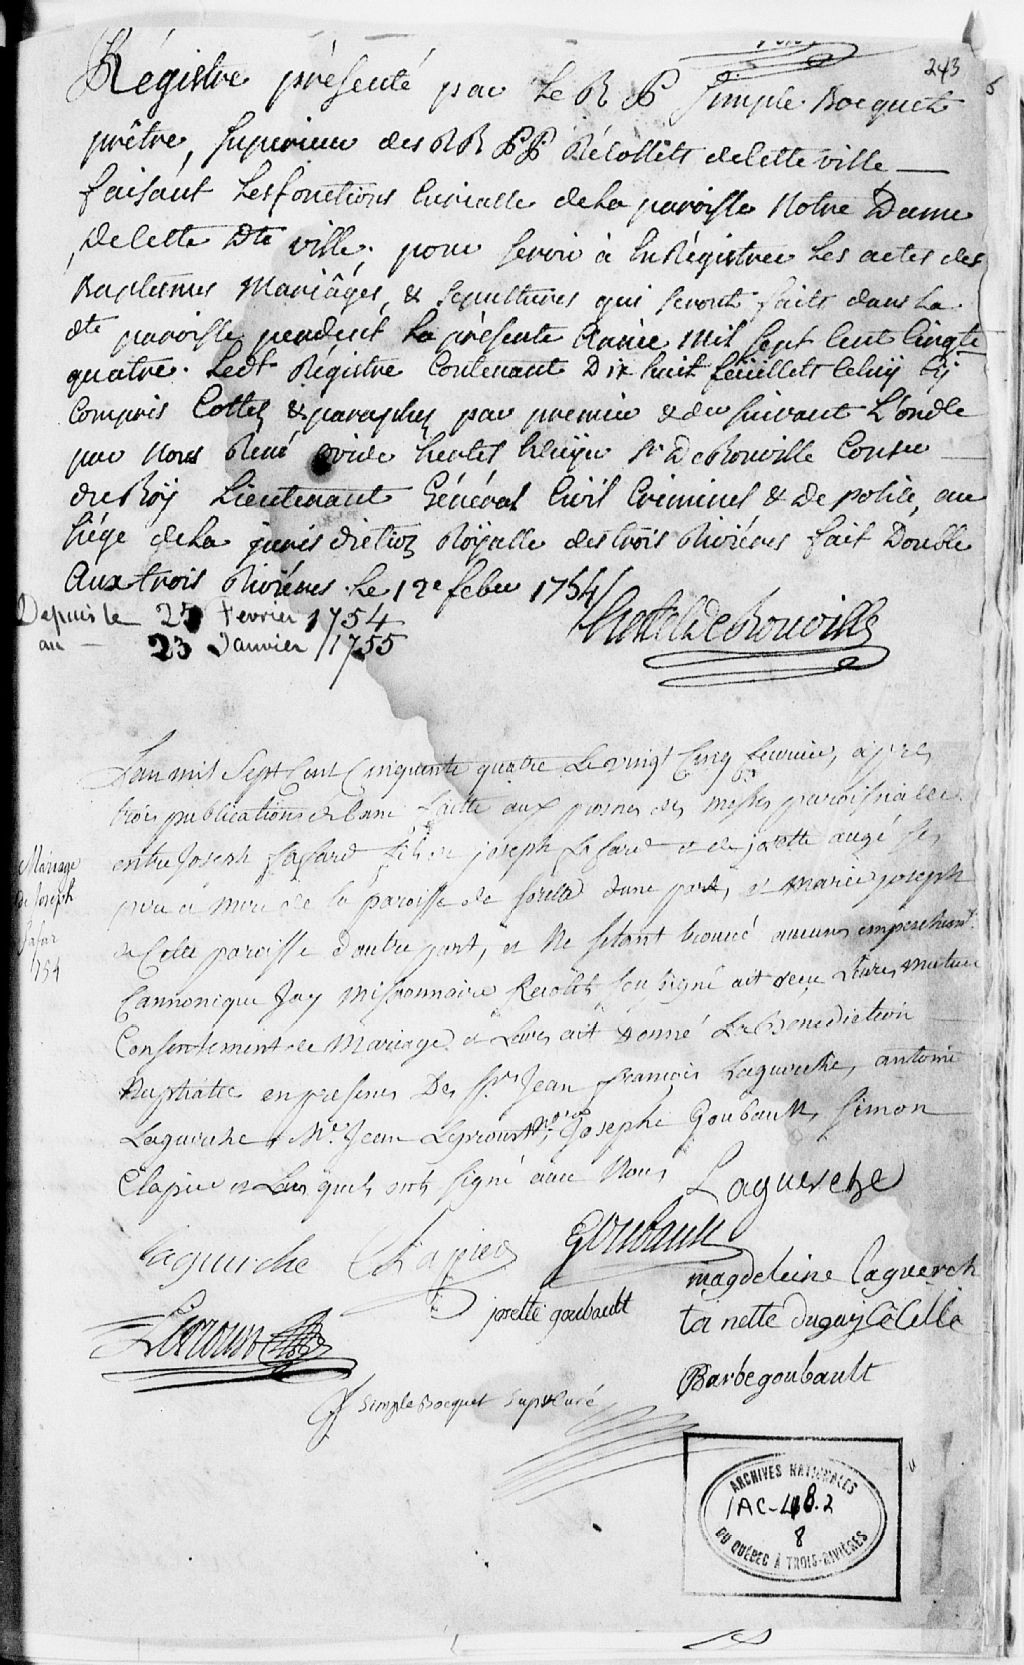 243
6
Régistre présenté par Le R P Simple Bocquet
prêtre, supérieur des RR PP Récollets de Cette ville
faisant Les fonctions Curialle de La paroisse Notre Dame
de Cette Dte ville. pour servir à EnRégistrer Les actes des
Baptesmes Mariâges, & sepultures qui seront faits dans La
dte paroisse pendent La présente Année Mil sept Cent Cinqte
quatre. Ledt Régistre Contenant Dix huit feüillets Celuy Cy
Compris Cottez & paraphez par premier & der suivant L'ordce
par Nous René ovide hertel Sr De Rouville Conser
du Roÿ Lieutenant Général Civil Criminel & De police, au
siége de La jurisdiction Roÿalle des trois Riviéres fait Double
Aux trois Riviéres. Le 12e febr 1754/
Depuis le 25 Fevrier 1754
au — 23 Janvier 1755
hertel De Rouville
L'an mil Sept Cent Cinquante quatre Le vingt Cinq feurier, apres
trois publications de banc faitte aux prones des messes paroissialles
entre Joseph Lafard fils de joseph Lafard et de josette augé ses
pere et mere de la paroisse de sorelle d'une part, et marie joseph
de Cette paroisse d'autre part, et ne s'etant trouué aucuns empeschemt
Cannonique Jay missionnaire Recolet sousigné ait receu Leurs mutuel
Consentement de Mariage et Leurs ait donné La Benediction
Nuptialle en presence Des Srs Jean francois Laguerche, antoine
Laguerche, Mr. Jean Leproust Nre, Josephe Goubault, simon
Clapier et Lesquels ont signé avec Nous
Mariage
de Joseph
Lafar
1754
Laguerche
laguerche Clapier Goubault
magdeleine laguerch
josette goubault
ta nette duguy
Leproust
Barbe goubault
f simple Bocquet supr & curé
ARCHIVES NATIONALES
1AC-48.2
8
DU QUÉBEC À TROIS-RIVIÈRES